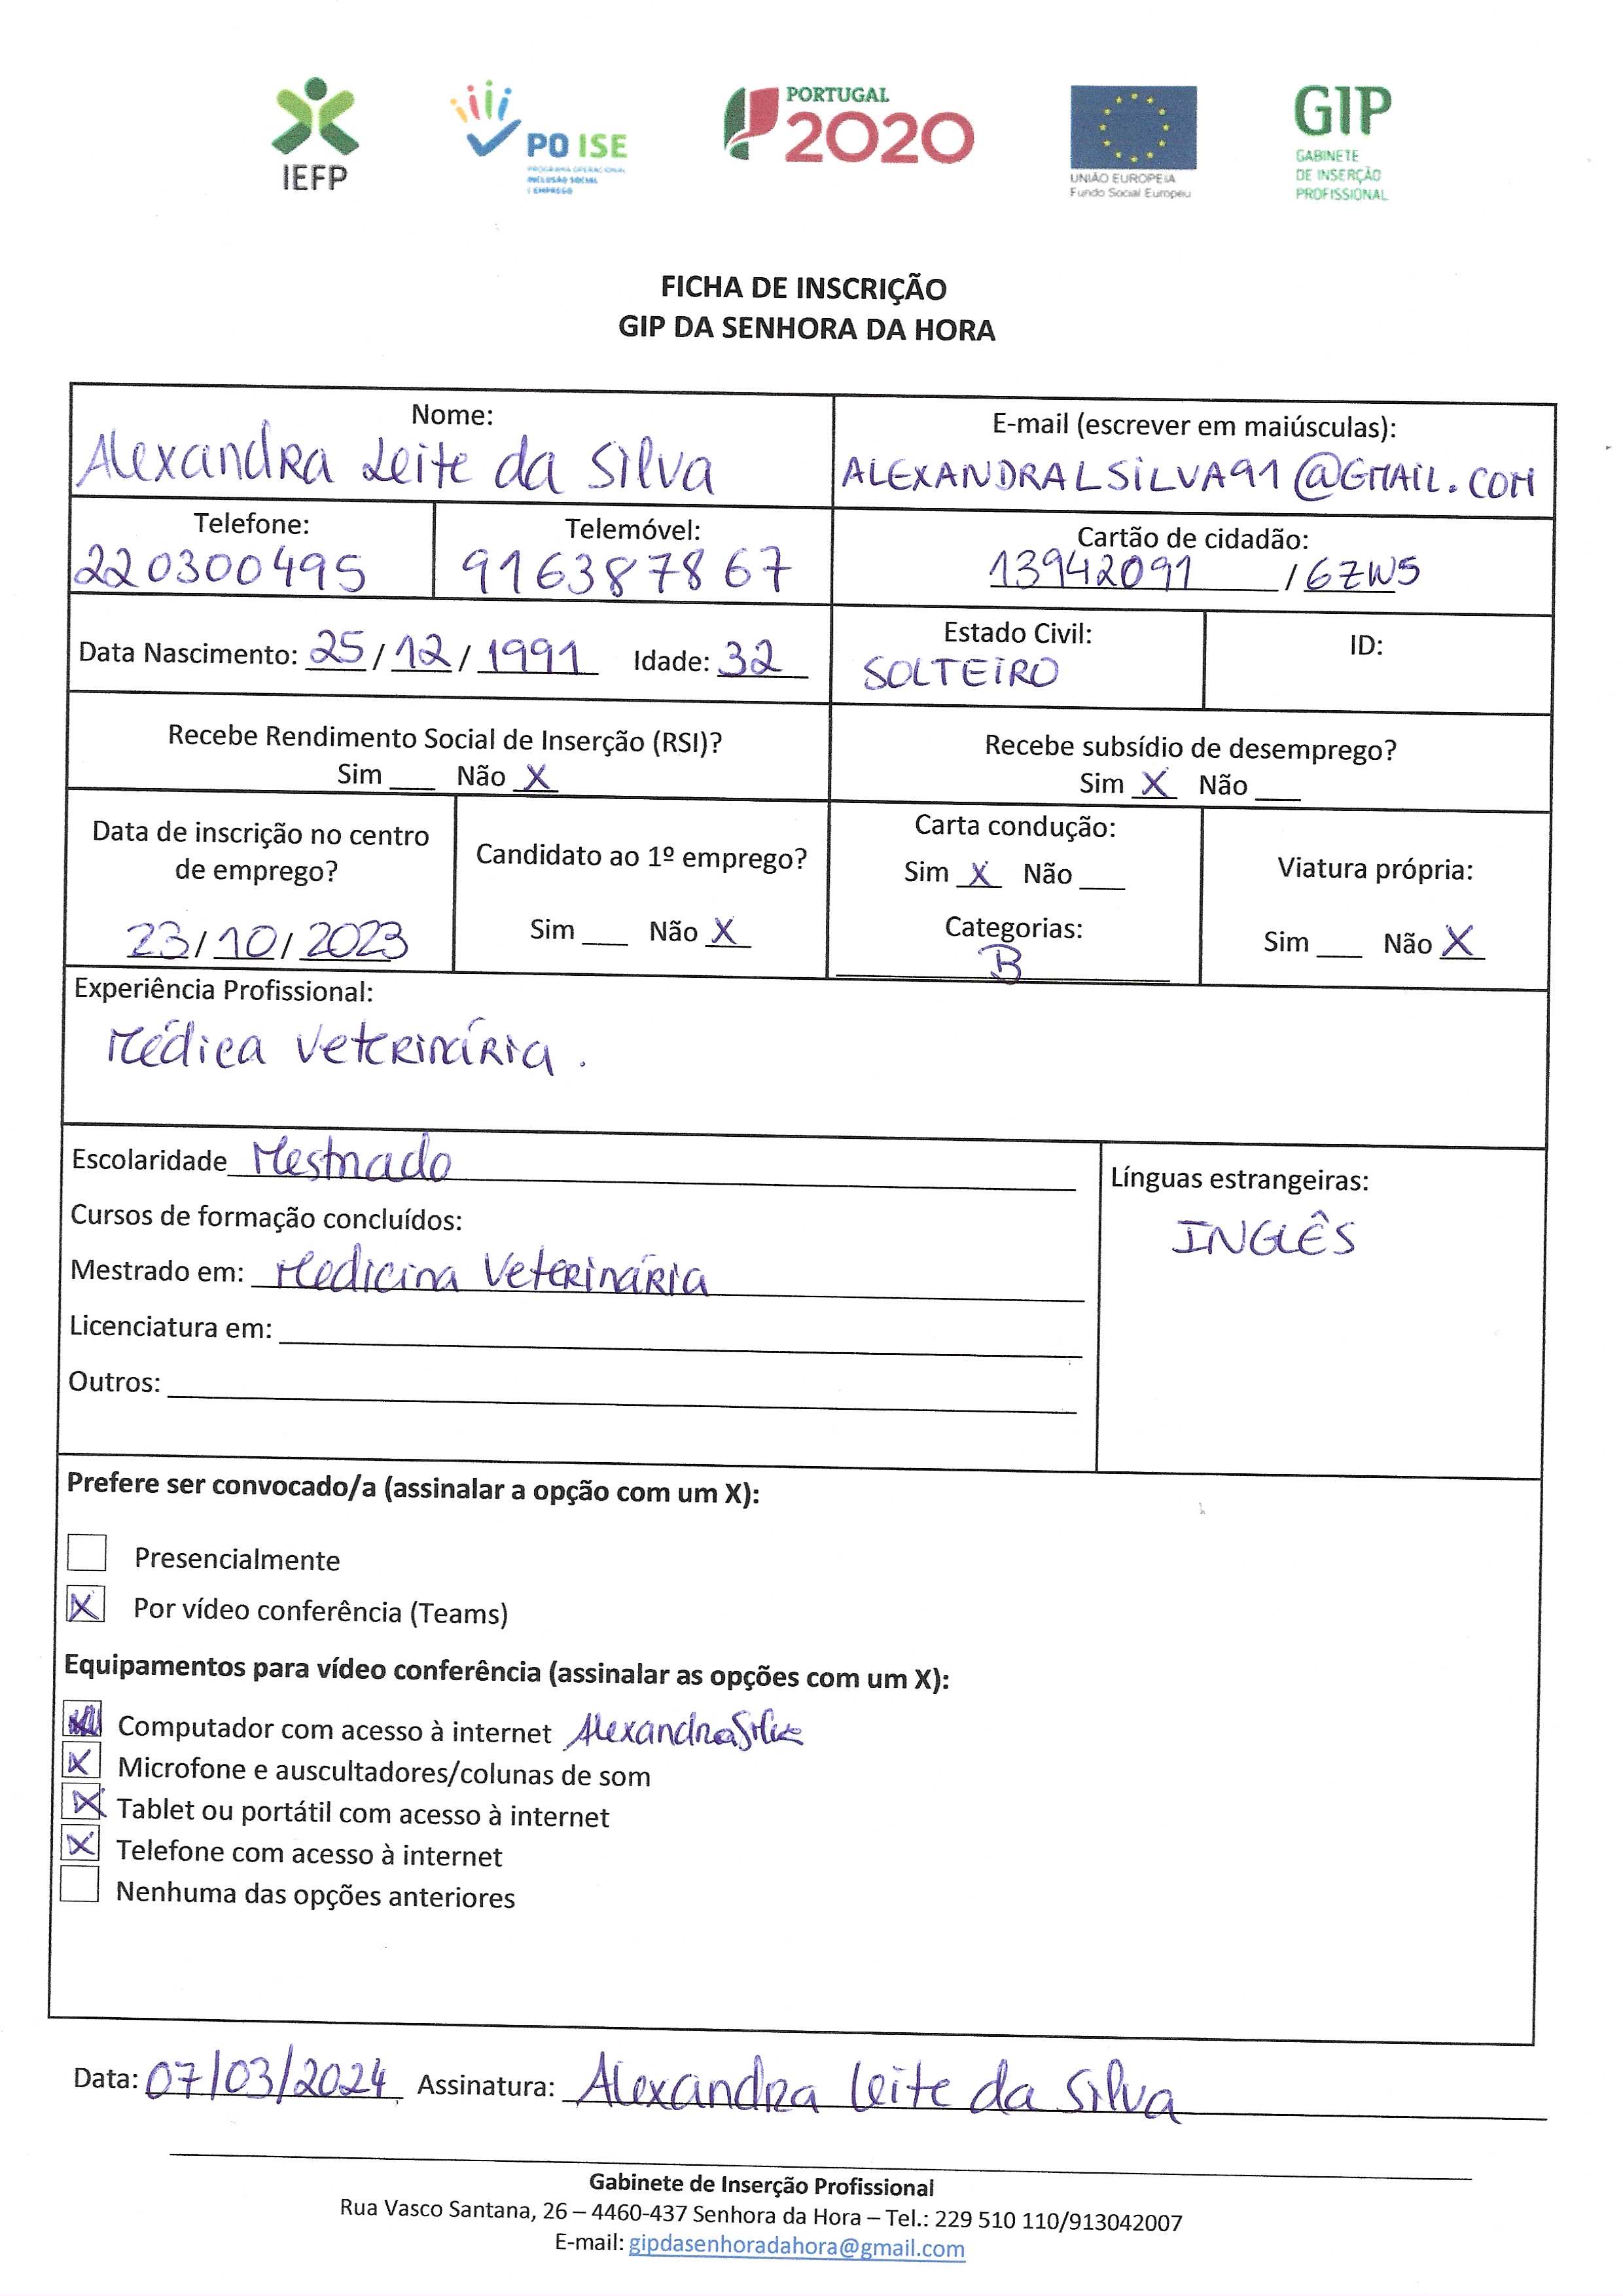 IEFP
PO ISE
PROGRAMA OPERACIONAL
INCLUSÃO SOCIAL
E EMPREGO
PORTUGAL
2020
UNIÃO EUROPEIA
Fundo Social Europeu
GIP
GABINETE
DE INSERÇÃO
PROFISSIONAL
FICHA DE INSCRIÇÃO
GIP DA SENHORA DA HORA
Nome:
Alexandra Leite da Silva
E-mail (escrever em maiúsculas):
ALEXANDRALSILVA91@GMAIL.COM
Telefone:
220300495
Telemóvel:
916387867
Cartão de cidadão:
13942091 / 6ZW5
Data Nascimento: 25 / 12 / 1991 Idade: 32
Estado Civil:
SOLTEIRO
ID:
Recebe Rendimento Social de Inserção (RSI)?
Sim ___ Não X
Recebe subsídio de desemprego?
Sim X Não ___
Data de inscrição no centro
de emprego?
23 / 10 / 2023
Candidato ao 1º emprego?
Sim ___ Não X
Carta condução:
Sim X Não ___
Categorias:
B
Viatura própria:
Sim ___ Não X
Experiência Profissional:
Médica Veterinária.
Escolaridade Mestrado
Cursos de formação concluídos:
Mestrado em: Medicina Veterinária
Licenciatura em:
Outros:
Línguas estrangeiras:
INGLÊS
Prefere ser convocado/a (assinalar a opção com um X):
Presencialmente
X Por vídeo conferência (Teams)
Equipamentos para vídeo conferência (assinalar as opções com um X):
Computador com acesso à internet AlexandraSilva
X Microfone e auscultadores/colunas de som
X Tablet ou portátil com acesso à internet
X Telefone com acesso à internet
Nenhuma das opções anteriores
Data: 07/03/2024 Assinatura: Alexandra Leite da Silva
Gabinete de Inserção Profissional
Rua Vasco Santana, 26 – 4460-437 Senhora da Hora – Tel.: 229 510 110/913042007
E-mail: gipdasenhoradahora@gmail.com